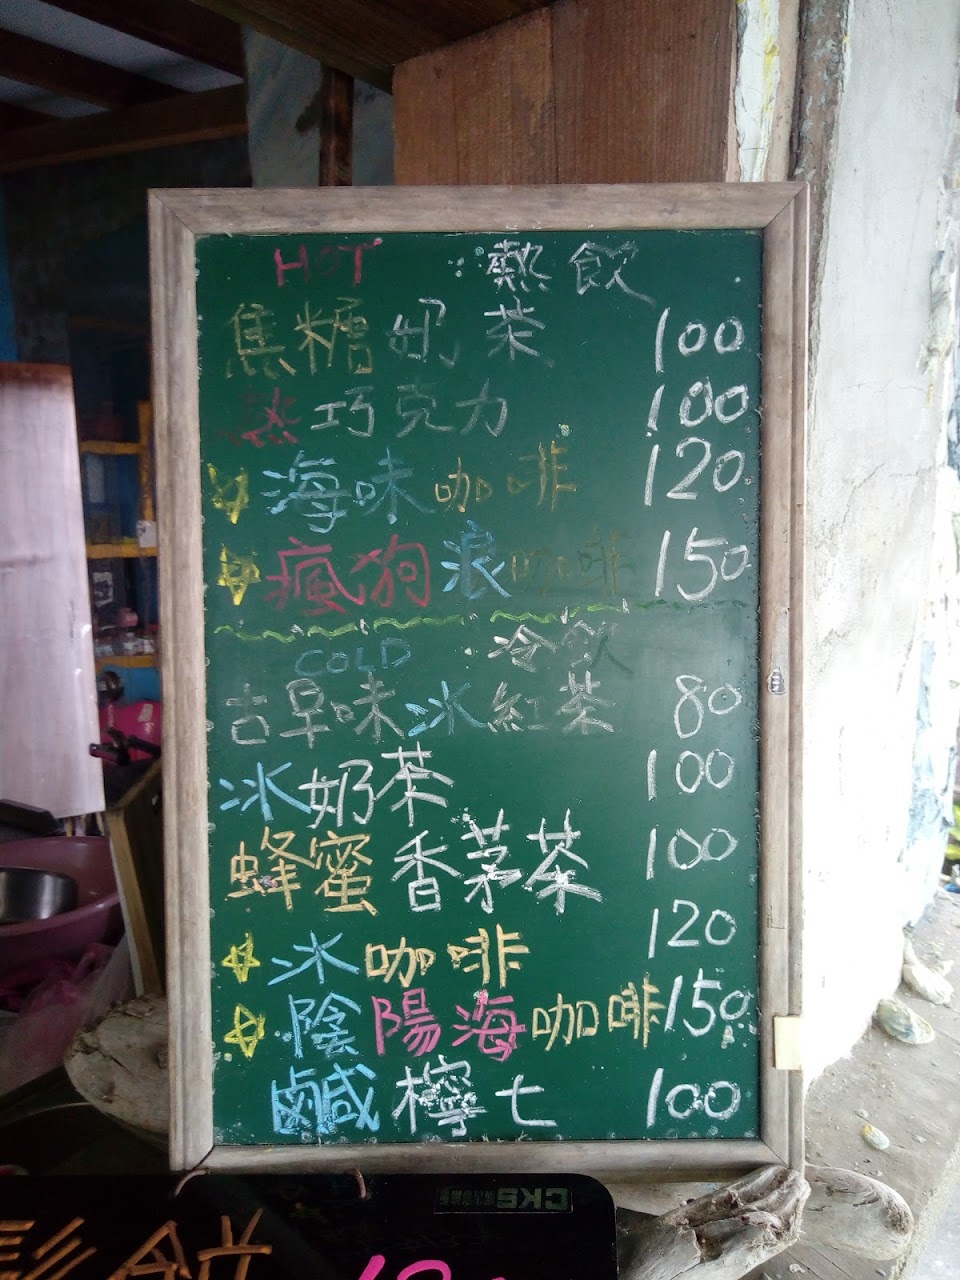 HOT 熱飲
焦糖奶茶 100
熱巧克力 100
海味咖啡 120
瘋狗浪咖啡 150
COLD 冷飲
古早味冰紅茶 80
冰奶茶 100
蜂蜜香茅茶 100
冰咖啡 120
陰陽海咖啡 150
鹹檸七 100
CKS